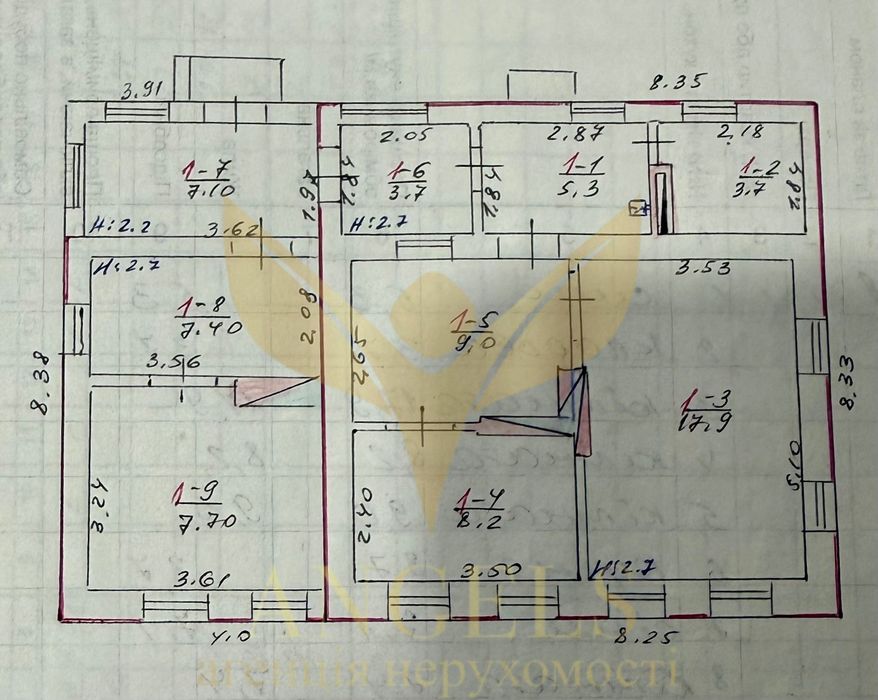 3.91
8.35
2.05
2.87
2.18
1-7
7.10
1.97
2.84
1-6
3.7
2.84
1-1
5.3
1-2
3.7
2.84
H:2.2
3.62
H:2.7
H:2.7
3.53
1-8
7.40
2.08
1-5
9.0
2,65
3.56
8.38
8.33
1-3
17,9
5.10
1-9
7.70
3.24
2.40
1-4
8.2
3.61
3.50
H:2.7
4.0
8.25
ANGELS
агенція нерухомості